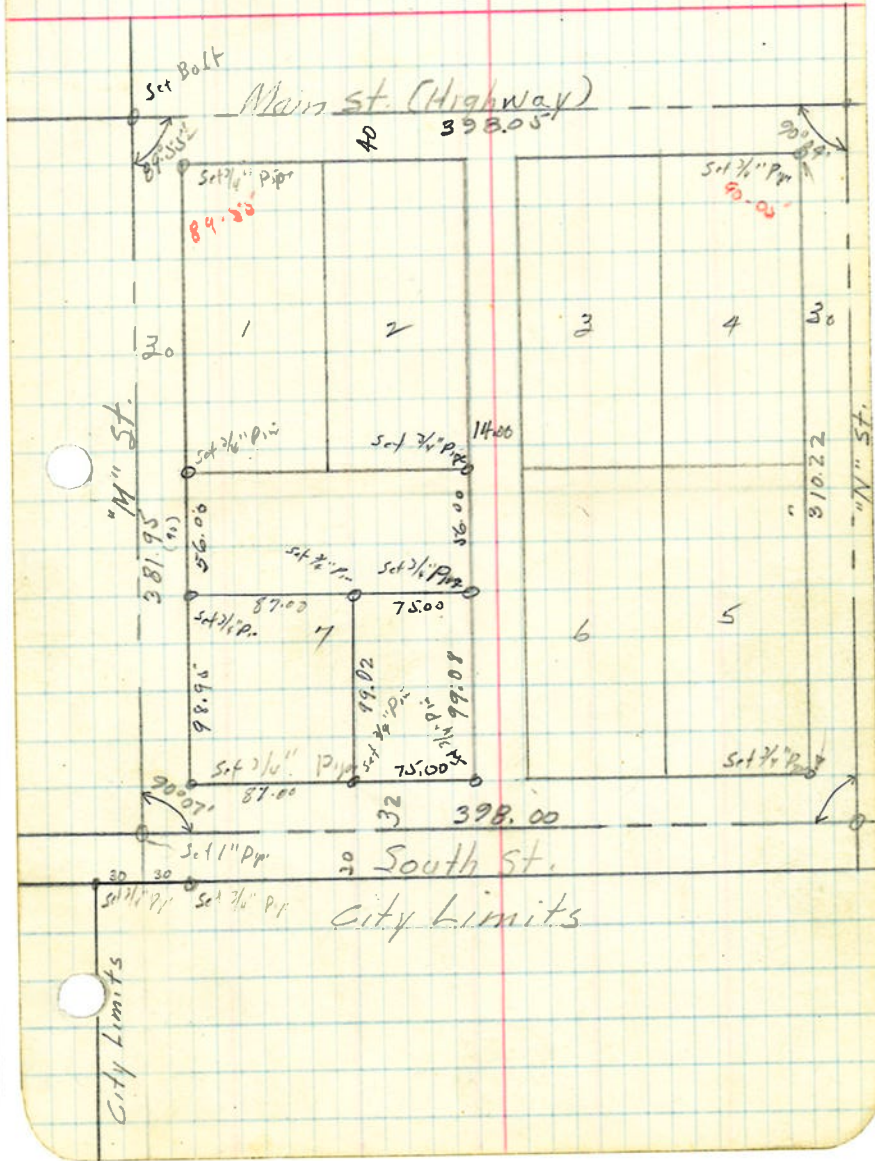 Set Bolt
Main St. (Highway)
40
398.05
89°55'
90°04'
Set 3/4" Pipe
Set 3/4" Pipe
1
2
3
4
30
30
"M" St.
"N" St.
14.00
Set 3/4" Pin
Set 3/4" Pipe
310.22
381.95
(90)
56.00
56.00
Set 3/4" Pin
Set 3/4" Pipe
87.00
75.00
Set 3/4" Pin
7
6
5
98.95
99.02
99.08
Set 3/4" Pin
Set 3/4" Pin
Set 3/4" Pipe
87.00
75.00
Set 3/4" Pipe
90°07'
32
398.00
Set 1" Pipe
South St.
30
30
Set 3/4" Pip
Set 3/4" Pip
City Limits
City Limits